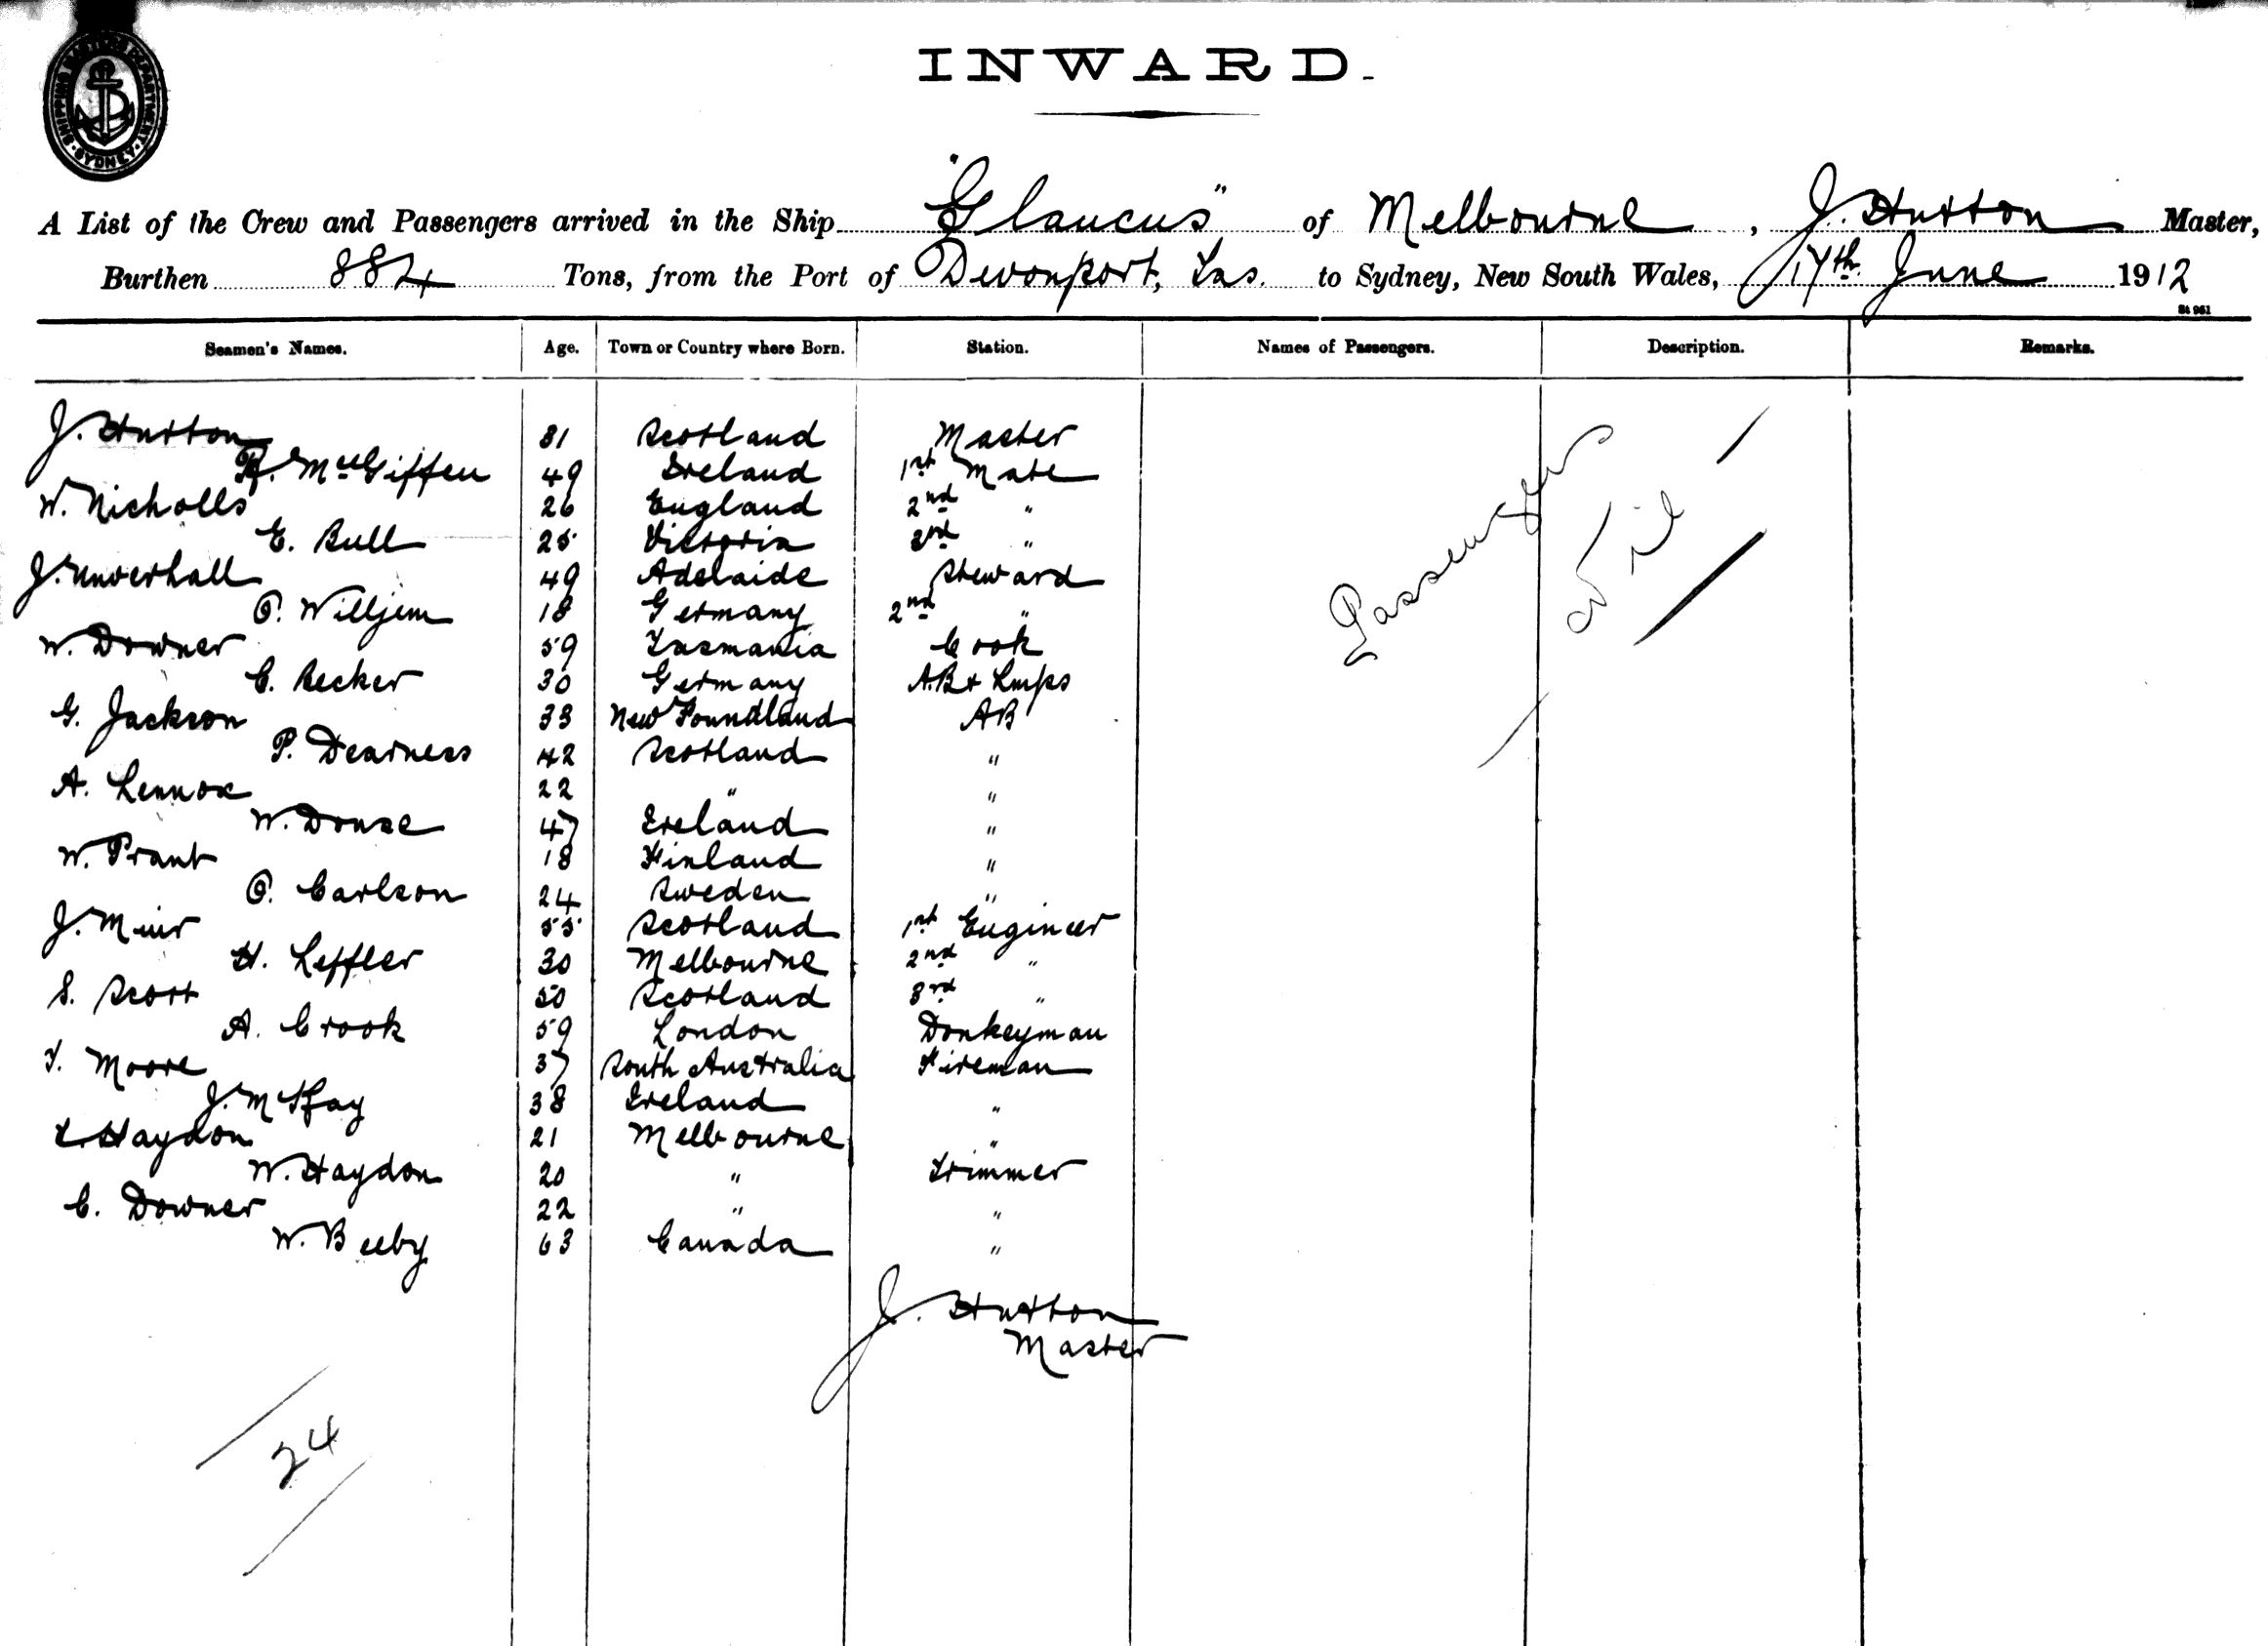 SHIPPING MASTER'S DEPARTMENT · SYDNEY ·
INWARD.
A List of the Crew and Passengers arrived in the Ship "Glaucus" of Melbourne, J. Hutton Master,
Burthen 884 Tons, from the Port of Devonport, Tas. to Sydney, New South Wales, 17th June 1912
St 961
Seamen's Names. Age. Town or Country where Born. Station. Names of Passengers. Description. Remarks.
J. Hutton 81 Scotland Master
R. McGiffen 49 Ireland 1st Mate
W. Nicholls 26 England 2nd "
E. Bull 25 Victoria 3rd "
J. Unverhall 49 Adelaide Steward
O. Willjem 18 Germany 2nd "
W. Downer 59 Tasmania Cook
C. Becker 30 Germany A.B & Lmps
G. Jackson 33 New Foundland AB
P. Dearness 42 Scotland "
A. Lennox 22 " "
W. Douse 47 Ireland "
W. Prant 18 Finland "
O. Carlson 24 Sweden "
J. Muir 55 Scotland 1st Engineer
H. Leffler 30 Melbourne 2nd "
S. Scott 50 Scotland 3rd "
A. Crook 59 London Donkeyman
T. Moore 37 South Australia Fireman
J. McKay 38 Ireland "
L. Haydon 21 Melbourne "
W. Haydon 20 " Trimmer
C. Downer 22 " "
W. Beeby 63 Canada "
Passenger
Nil
J. Hutton
Master
24